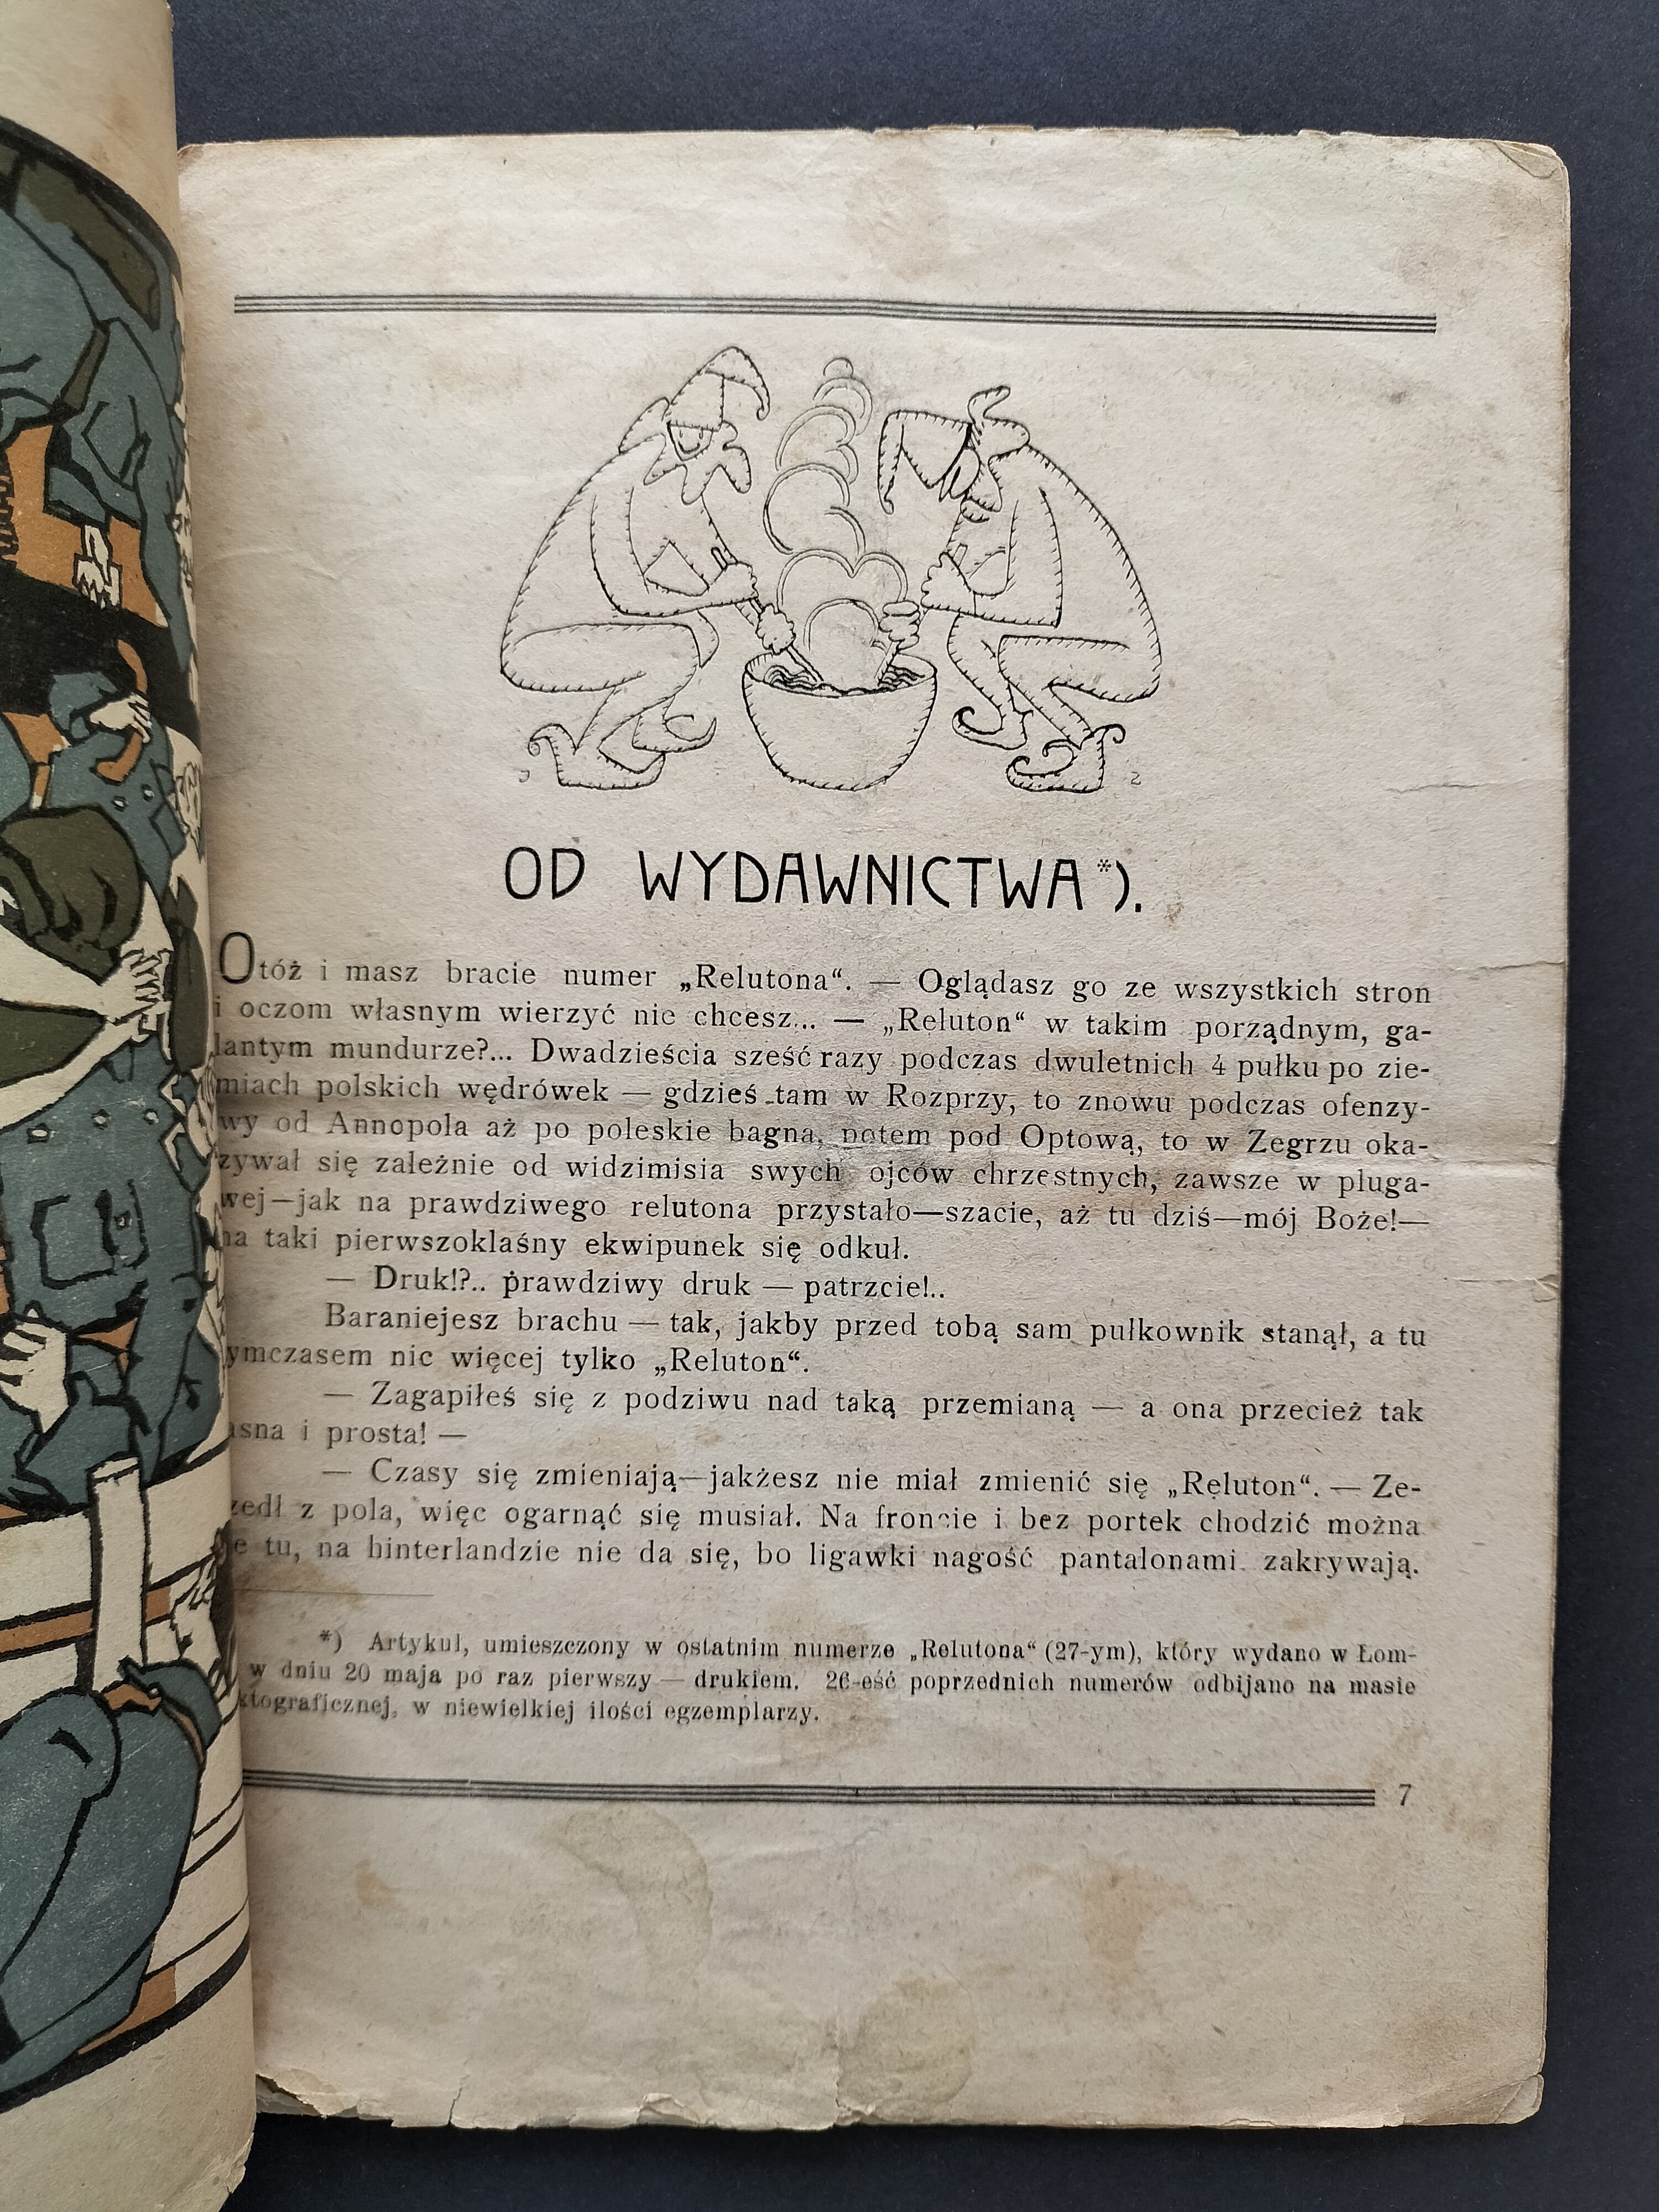 OD WYDAWNICTWA*).
Otóż i masz bracie numer „Relutona“. — Oglądasz go ze wszystkich stron
i oczom własnym wierzyć nie chcesz... — „Reluton“ w takim porządnym, ga-
lantym mundurze?... Dwadzieścia sześć razy podczas dwuletnich 4 pułku po zie-
miach polskich wędrówek — gdzieś tam w Rozprzy, to znowu podczas ofenzy-
wy od Annopola aż po poleskie bagna, potem pod Optową, to w Zegrzu oka-
zywał się zależnie od widzimisia swych ojców chrzestnych, zawsze w pluga-
wej—jak na prawdziwego relutona przystało—szacie, aż tu dziś—mój Boże!—
na taki pierwszoklaśny ekwipunek się odkuł.
— Druk!?.. prawdziwy druk — patrzcie!..
Baraniejesz brachu — tak, jakby przed tobą sam pułkownik stanął, a tu
ymczasem nic więcej tylko „Reluton“.
— Zagapiłeś się z podziwu nad taką przemianą — a ona przecież tak
asna i prosta! —
— Czasy się zmieniają—jakżesz nie miał zmienić się „Reluton“. — Ze-
zedł z pola, więc ogarnąć się musiał. Na froncie i bez portek chodzić można
e tu, na hinterlandzie nie da się, bo ligawki nagość pantalonami zakrywają.
*) Artykuł, umieszczony w ostatnim numerze „Relutona“ (27-ym), który wydano w Łom-
w dniu 20 maja po raz pierwszy — drukiem. 26-eść poprzednich numerów odbijano na masie
ktograficznej, w niewielkiej ilości egzemplarzy.
7